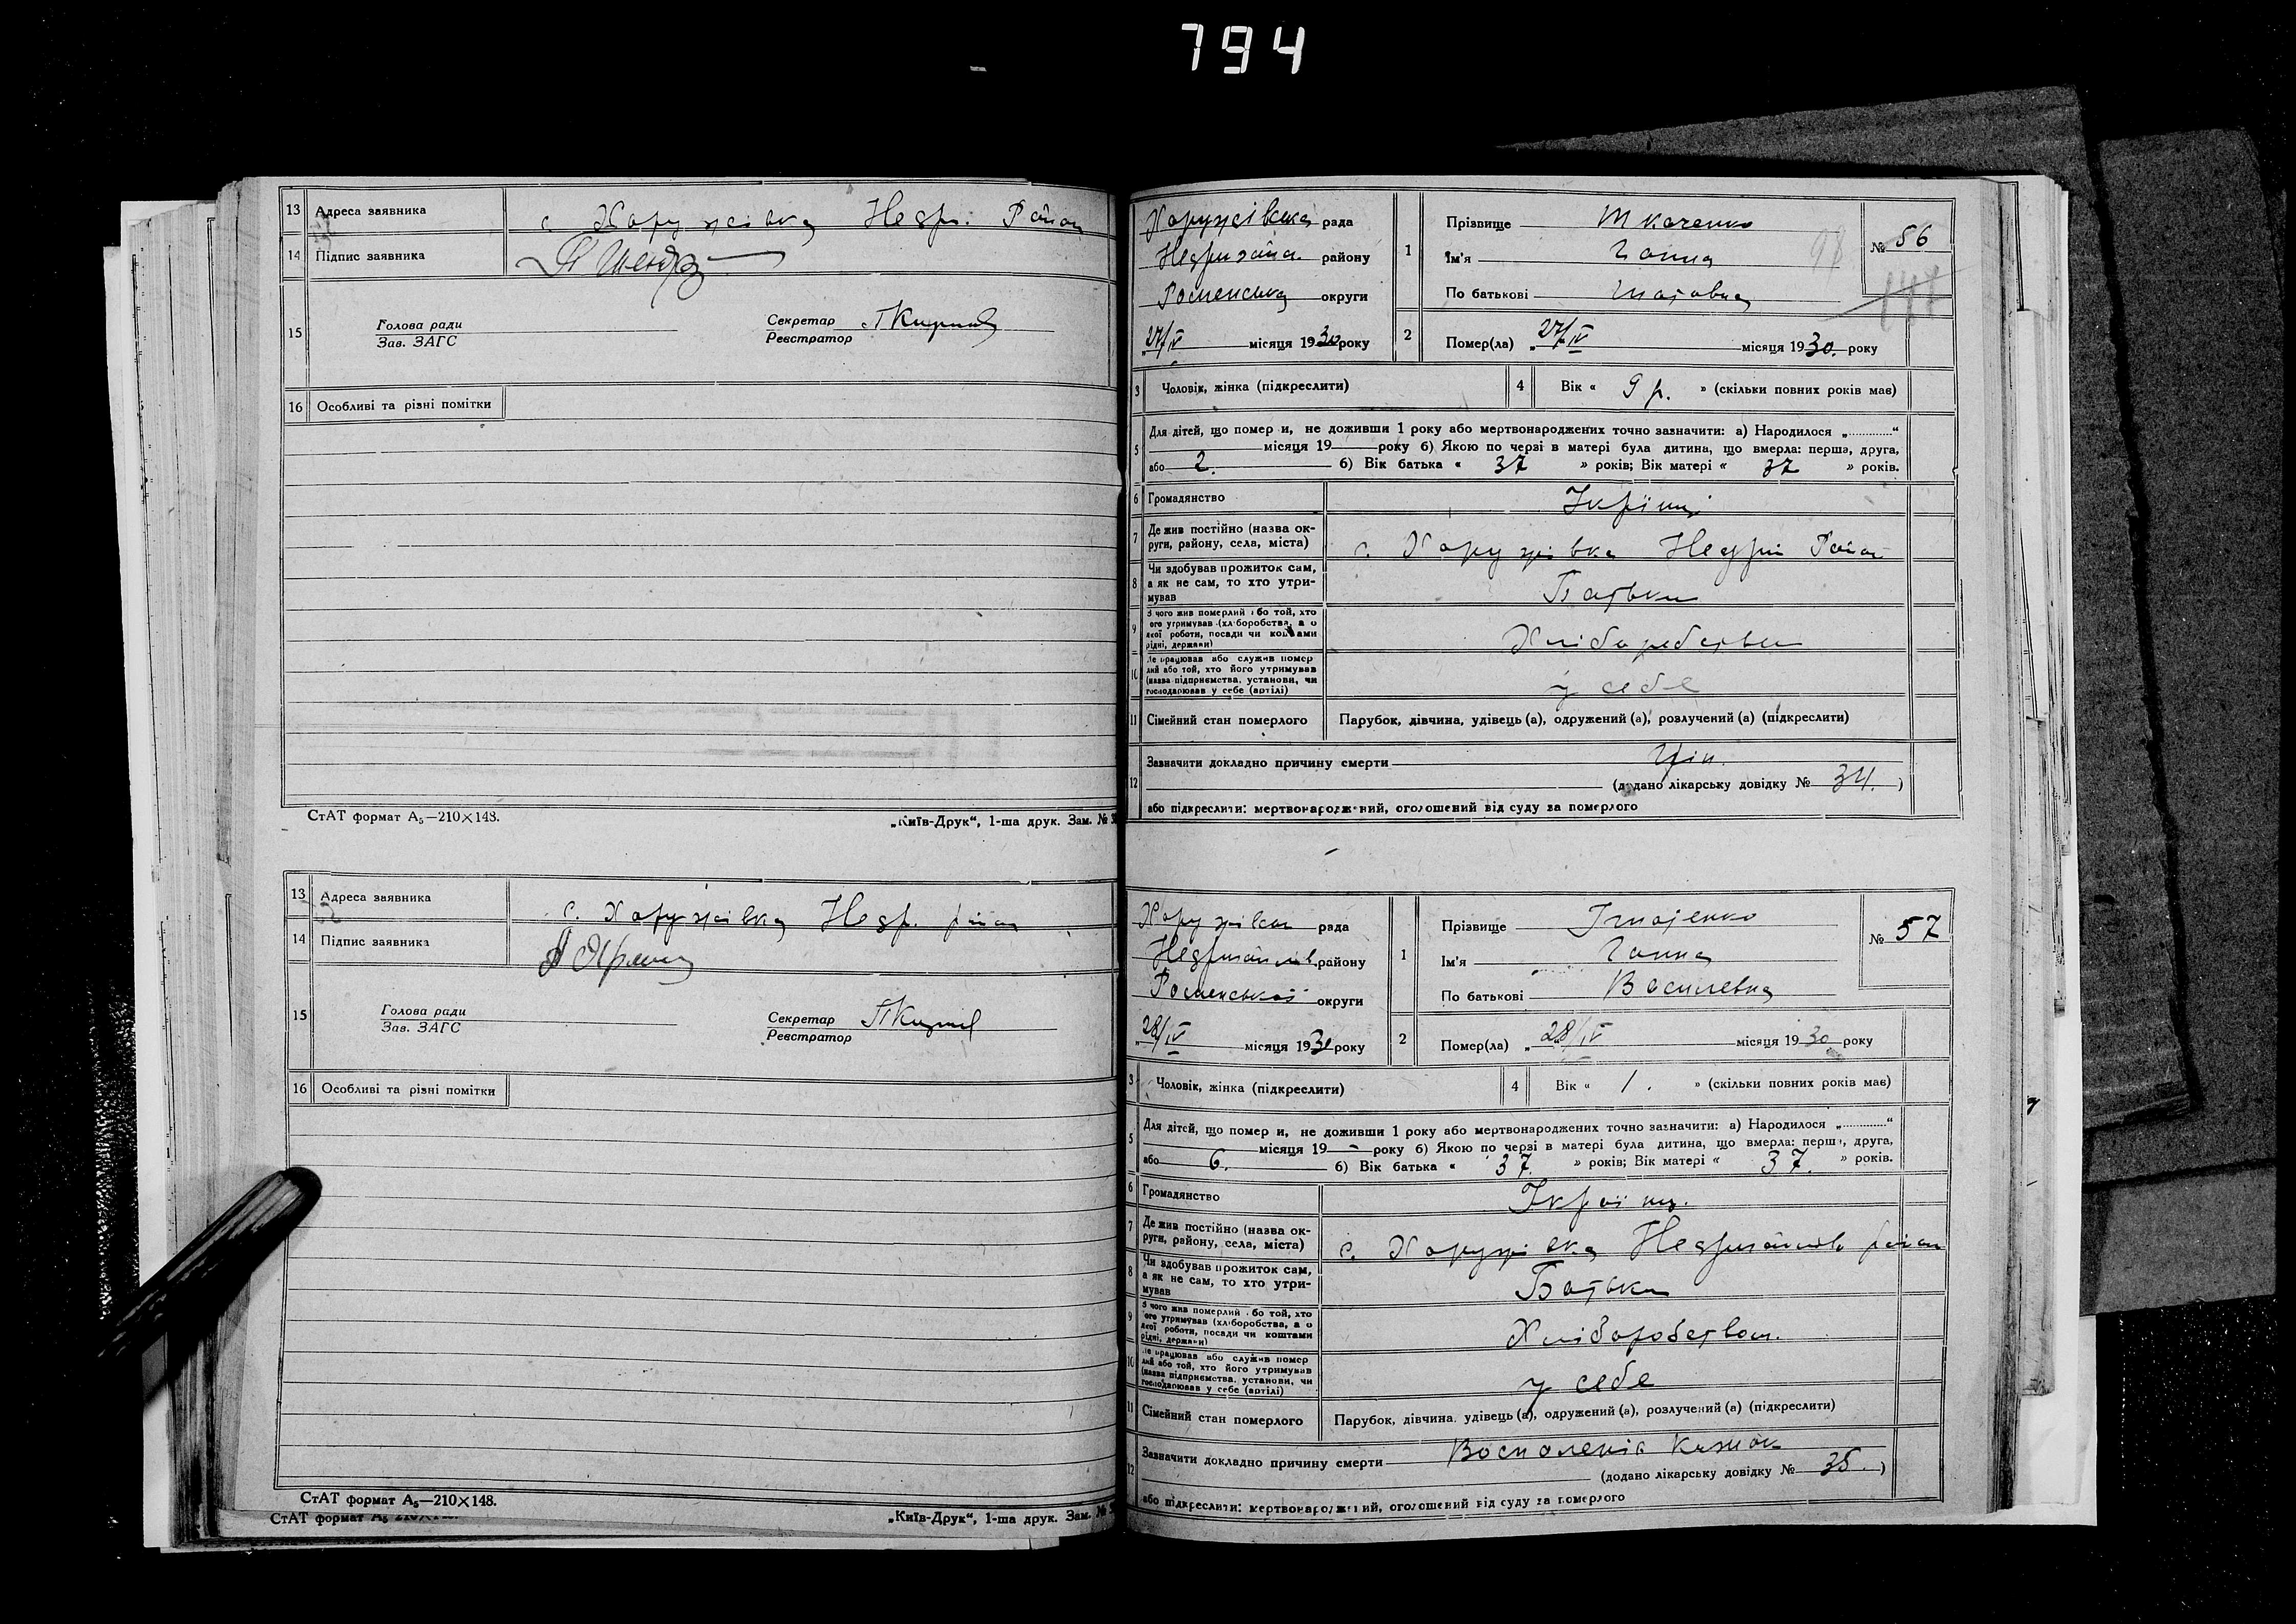 794
13 Адреса заявника с. Хоружівка Недр. Район
14 Підпис заявника
15 Голова ради
Зав. ЗАГС
Секретар
Реєстратор
16 Особливі та різні помітки
СтАТ формат А5—210×148.
„Київ-Друк“, 1-ша друк. Зам. №
13 Адреса заявника с. Хоружівка Недр. район
14 Підпис заявника
15 Голова ради
Зав. ЗАГС
Секретар
Реєстратор
16 Особливі та різні помітки
СтАТ формат А5—210×148.
СтАТ формат А5 210×148.
„Київ-Друк“, 1-ша друк. Зам. №
Хоружівська рада
Недригайл. району
Роменська округи
27/IV місяця 1930 року
1 Прізвище Ткаченко
Ім'я Ганна
По батькові
№ 56
98
2 Помер(ла) „27/IV місяця 1930. року
3 Чоловік, жінка (підкреслити)
4 Вік « 9 р. » (скільки повних років має)
5 Для дітей, що помер и, не доживши 1 року або мертвонароджених точно зазначити: а) Народилося „............“
місяця 19 року б) Якою по черзі в матері була дитина, що вмерла: перша, друга,
або 2. б) Вік батька « 37 » років; Вік матері « 37 » років.
6 Громадянство
7 Де жив постійно (назва ок-
руги, району, села, міста) с. Хоружівка Недриг Район
8 Чи здобував прожиток сам,
а як не сам, то хто утри-
мував Батьки
9 З чого жив померлий або той, хто
його утримував (хліборобства, а о
якої роботи, посади чи коштами
рідні, держави) Хліборобства
10 Де працював або служив помер
лий або той, хто його утримував
(назва підприємства, установи, чи
господарював у себе (артілі) у себе
11 Сімейний стан померлого Парубок, дівчина, удівець (а), одружений (а), розлучений (а) (підкреслити)
12 Зазначити докладно причину смерти
(додано лікарську довідку № 34. )
або підкреслити: мертвонароджений, оголошений від суду за померлого
Хоружівка рада
Недригайлів. району
Роменської округи
„28/IV місяця 1930 року
1 Прізвище Гнатенко
Ім'я Ганна
По батькові Василевна
№ 57
2 Помер(ла) „28/IV місяця 1930 року
3 Чоловік, жінка (підкреслити)
4 Вік « 1. » (скільки повних років має)
5 Для дітей, що помер и, не доживши 1 року або мертвонароджених точно зазначити: а) Народилося „............“
місяця 19 року б) Якою по черзі в матері була дитина, що вмерла: перша, друга,
або 6. б) Вік батька « 37. » років; Вік матері « 37. » років.
6 Громадянство Україн.
7 Де жив постійно (назва ок-
руги, району, села, міста) с. Хоружівка Недригайлів район
8 Чи здобував прожиток сам,
а як не сам, то хто утри-
мував Батьки
9 З чого жив померлий або той, хто
його утримував (хліборобства, а о
якої роботи, посади чи коштами
рідні, держави) Хліборобством.
10 Де працював або служив помер
лий або той, хто його утримував
(назва підприємства, установи, чи
господарював у себе (артілі) у себе
11 Сімейний стан померлого Парубок, дівчина, удівець (а), одружений (а), розлучений (а) (підкреслити)
12 Зазначити докладно причину смерти Воспаленія Кишок
(додано лікарську довідку № 35. )
або підкреслити: мертвонароджений, оголошений від суду за померлого